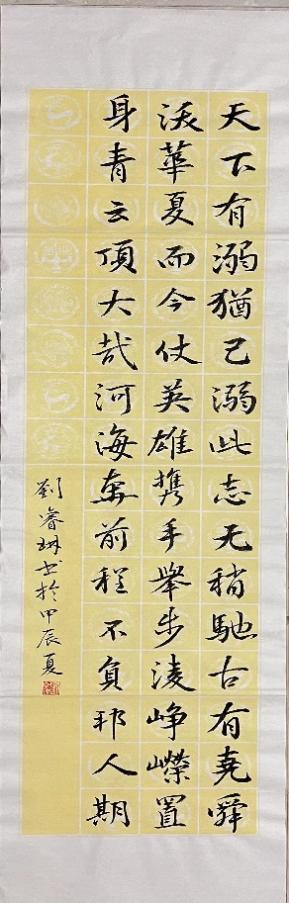 天下有溺猶己溺此志无稍馳古有堯舜
沃華夏而今仗英雄携手舉步淩崢嶸置
身青云頂大哉河海奔前程不負邦人期
劉睿书於甲辰夏